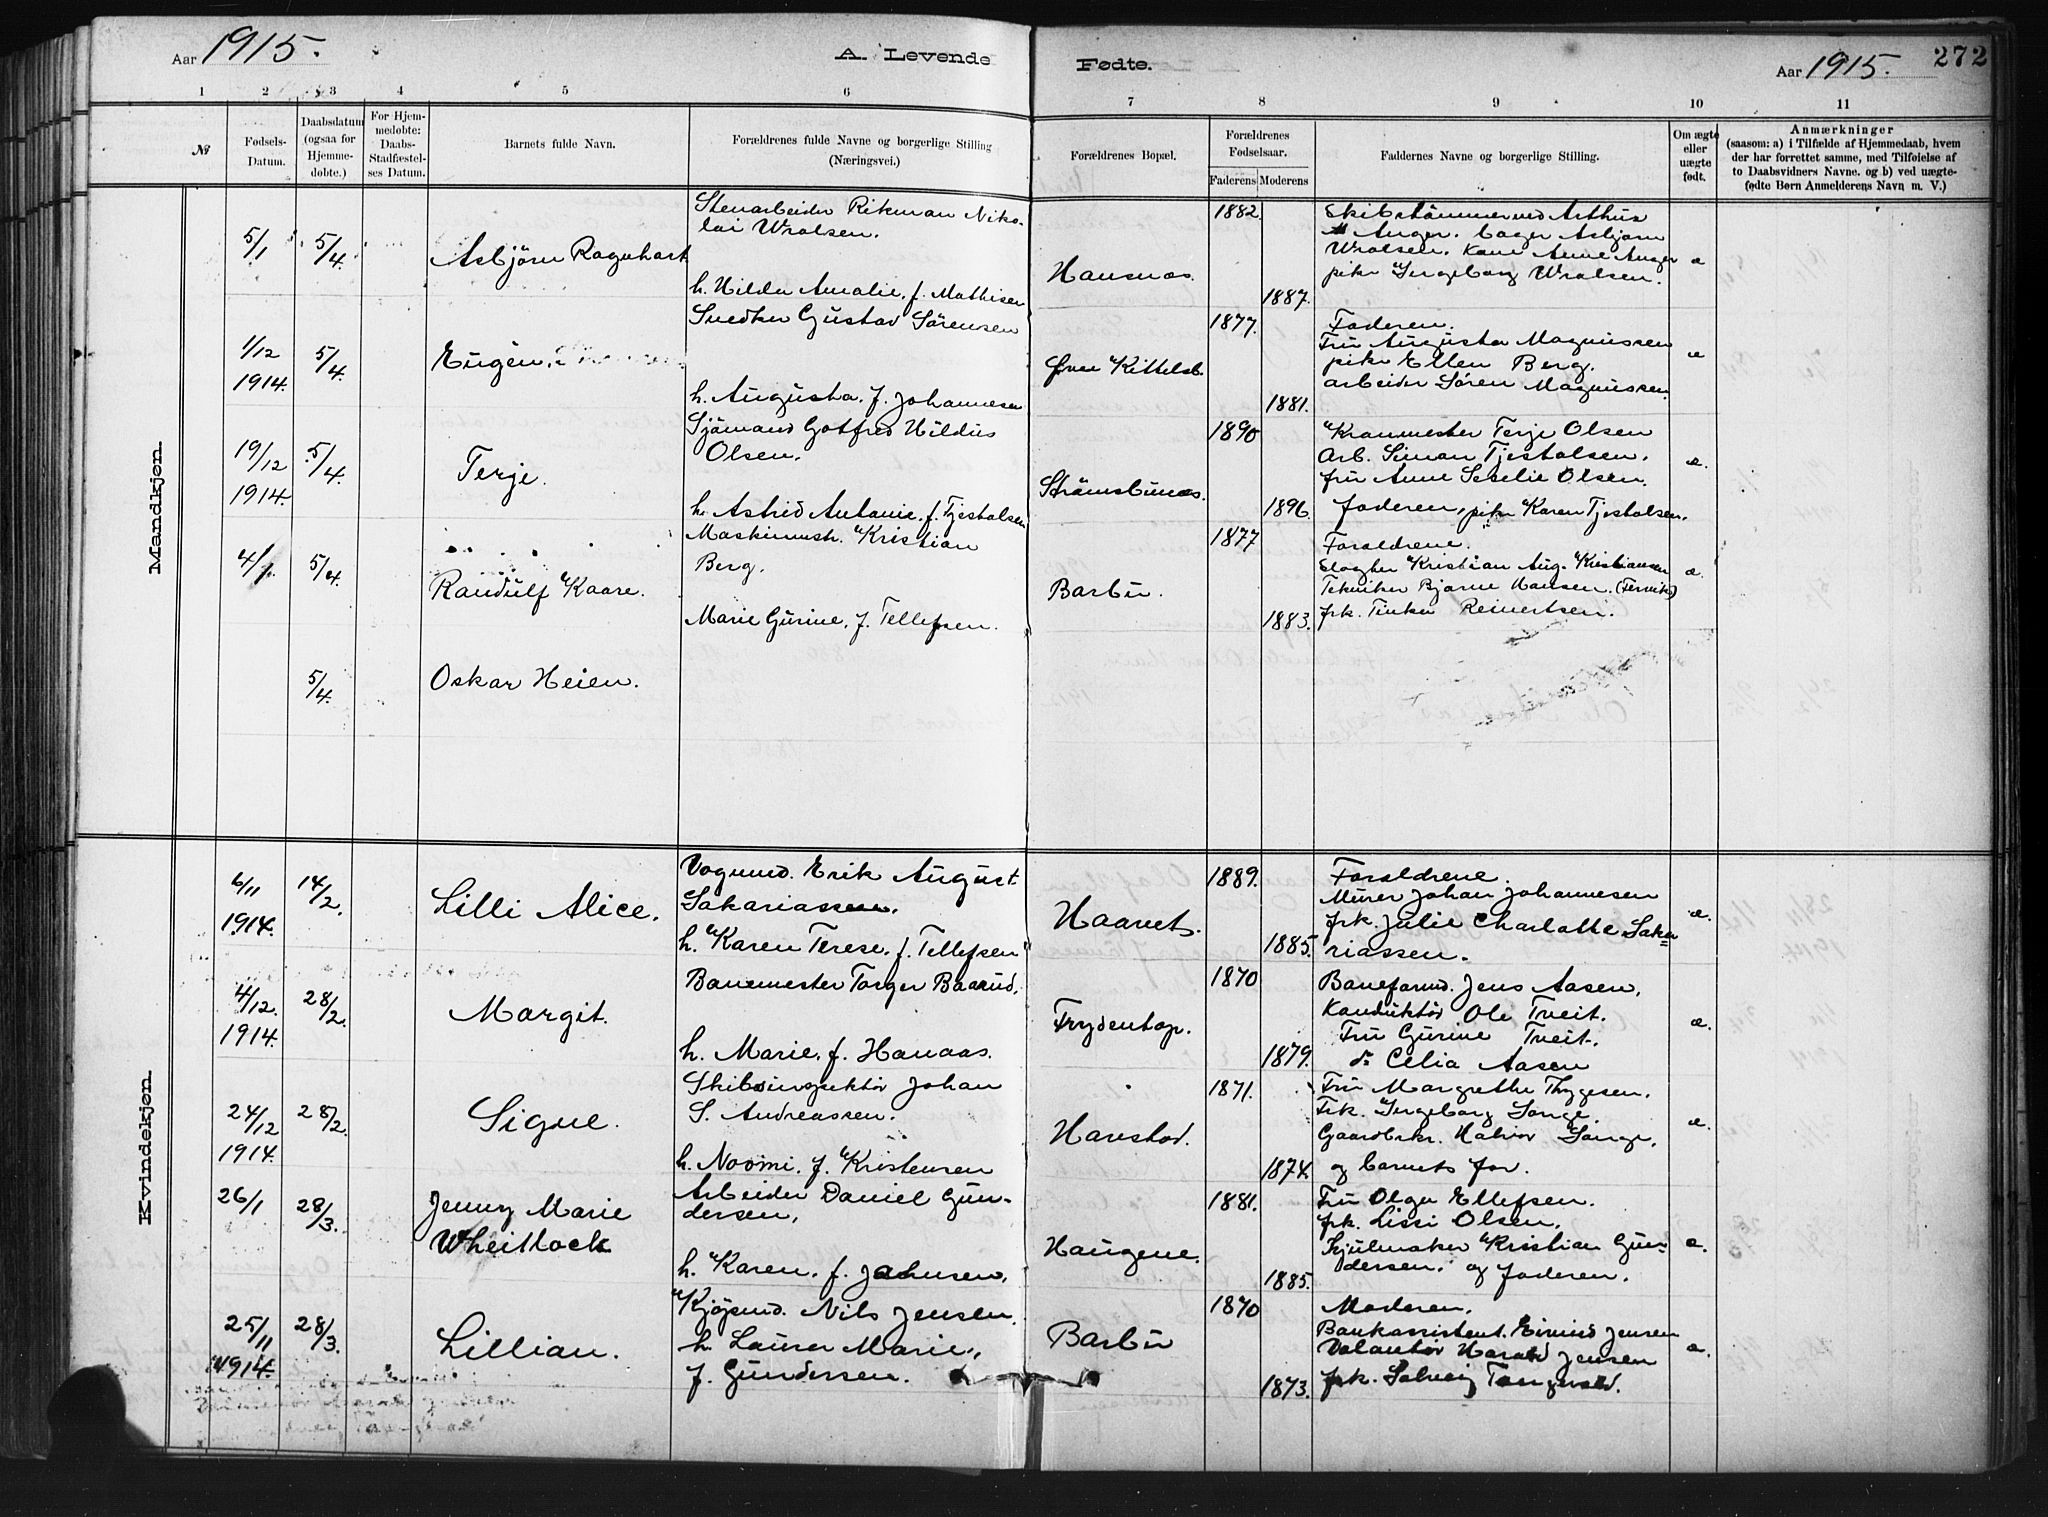 Aar 1915.
A. Levende Fødte.
Aar 1915.
272
1 2 3 4 5 6 7 8 9 10 11
№
Fødsels-
Datum.
Daabsdatum
(ogsaa for
Hjemme-
døbte.)
For Hjem-
medøbte:
Daabs-
Stadfæstel-
ses Datum.
Barnets fulde Navn.
Forældrenes fulde Navne og borgerlige Stilling
(Næringsvei.)
Forældrenes Bopæl.
Forældrenes
Fødselsaar.
Faderens Moderens
Faddernes Navne og borgerlige Stilling.
Om ægte
eller
uægte
født.
Anmærkninger
(saasom: a) i Tilfælde af Hjemmedaab, hvem
der har forrettet samme, med Tilføielse af
to Daabsvidners Navne. og b) ved uægte-
fødte Børn Anmelderens Navn m. V.)
Mandkjøn.
5/1 5/4.
Asbjörn Ragnhart
Stenarbeider Rikman Niko-
lai Wralsen.
h. Hilda Amalie, f. Mathisen
Hansnæs.
1882.
1887.
Arthur
Anger. Asbjørn
Wralsen. Kone Anne Anger
pike Ingeborg Wralsen.
æ
1/12
1914.
5/4.
Eugen.
Snedker Gustav Sörensen
h. Augusta. f. Johannesen
Øvre Kittelsb.
1877.
1881.
Faderen.
Fru Augusta Magnussen
pike Ellen Berg.
arbeider Søren Magnussen.
æ
19/12
1914.
5/4.
Terje.
Sjömand Gotfred Hildus
Olsen.
h. Astrid Antonie. f. Tjestolsen
Strømsbunæs.
1890
1896.
Kranmester Terje Olsen
Arb. Simon Tjestolsen.
fru Anne Seselie Olsen.
faderen, pike Karen Tjestolsen.
æ.
4/1. 5/4.
Randulf Kaare.
Maskinmstr. Kristian
Berg.
Marie Gurine. f. Tellefsen.
Barbu.
1877
1883.
Forældrene.
Slagter Kristian Aug. Kristiansen
Tekniker Bjarne Hansen.
frk. Tinka Reinertsen.
æ.
5/4.
Oskar Heien.
Kvindekjøn.
6/11
1914.
14/2.
Lilli Alice.
Vognmd. Erik August
Sakariassen.
h. Karen Terese. f. Tellefsen
Haavet.
1889.
1885.
Forældrene.
Murer Johan Johannesen
frk. Julie Charlotte Saka=
riassen.
æ.
4/12.
1914.
28/2.
Margit.
Banemester Torger Baarud.
h. Marie. f. Hanaas.
Frydentop.
1870
1879.
Baneformd. Jens Aasen.
Konduktör Ole Tveit.
Fru Gurine Tveit.
do Celia Aasen
æ.
24/12
1914.
28/2.
Signe.
Skibsinspektör Johan
S. Andreassen.
h. Noomi. f. Kristensen
Havstad.
1871.
1874.
Fru Margrethe Thygesen.
Frk. Ingeborg Longe.
Gaardbrkr. Halvor Longe.
og barnets far.
æ.
26/1 28/3.
Jenny Marie
Wheitlock
Arbeider Daniel Gun-
dersen.
h. Karen. f. Johnsen.
Haugene.
1881.
1885.
Fru Olga Ellefsen.
frk. Lissi Olsen.
Hjulmaker Kristian Gun-
dersen. og faderen.
æ.
25/11
1914.
28/3.
Lillian.
Kjøpmd. Nils Jensen.
h. Laura Marie.
f. Gundersen.
Barbu
1870
1873.
Moderen.
Bankassistent. Eivind Jensen
Volontör Harald Jensen
frk. Solveig
æ.